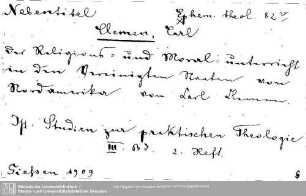 Nebentitel Ephem. theol. 82
Clemen, Carl
Der Religions- und Moralunterricht
in den Vereinigten Staaten von
Nordamerika von Carl Clemen.
Ist: Studien zur praktischen Theologie
III Bd 2. Heft
Giessen 1909